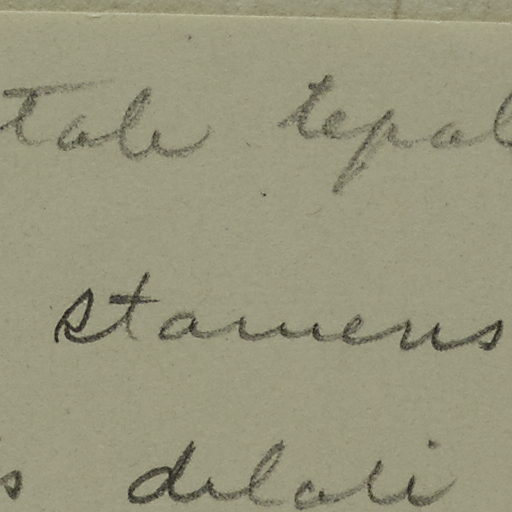 tale tepal
stamens
s delali